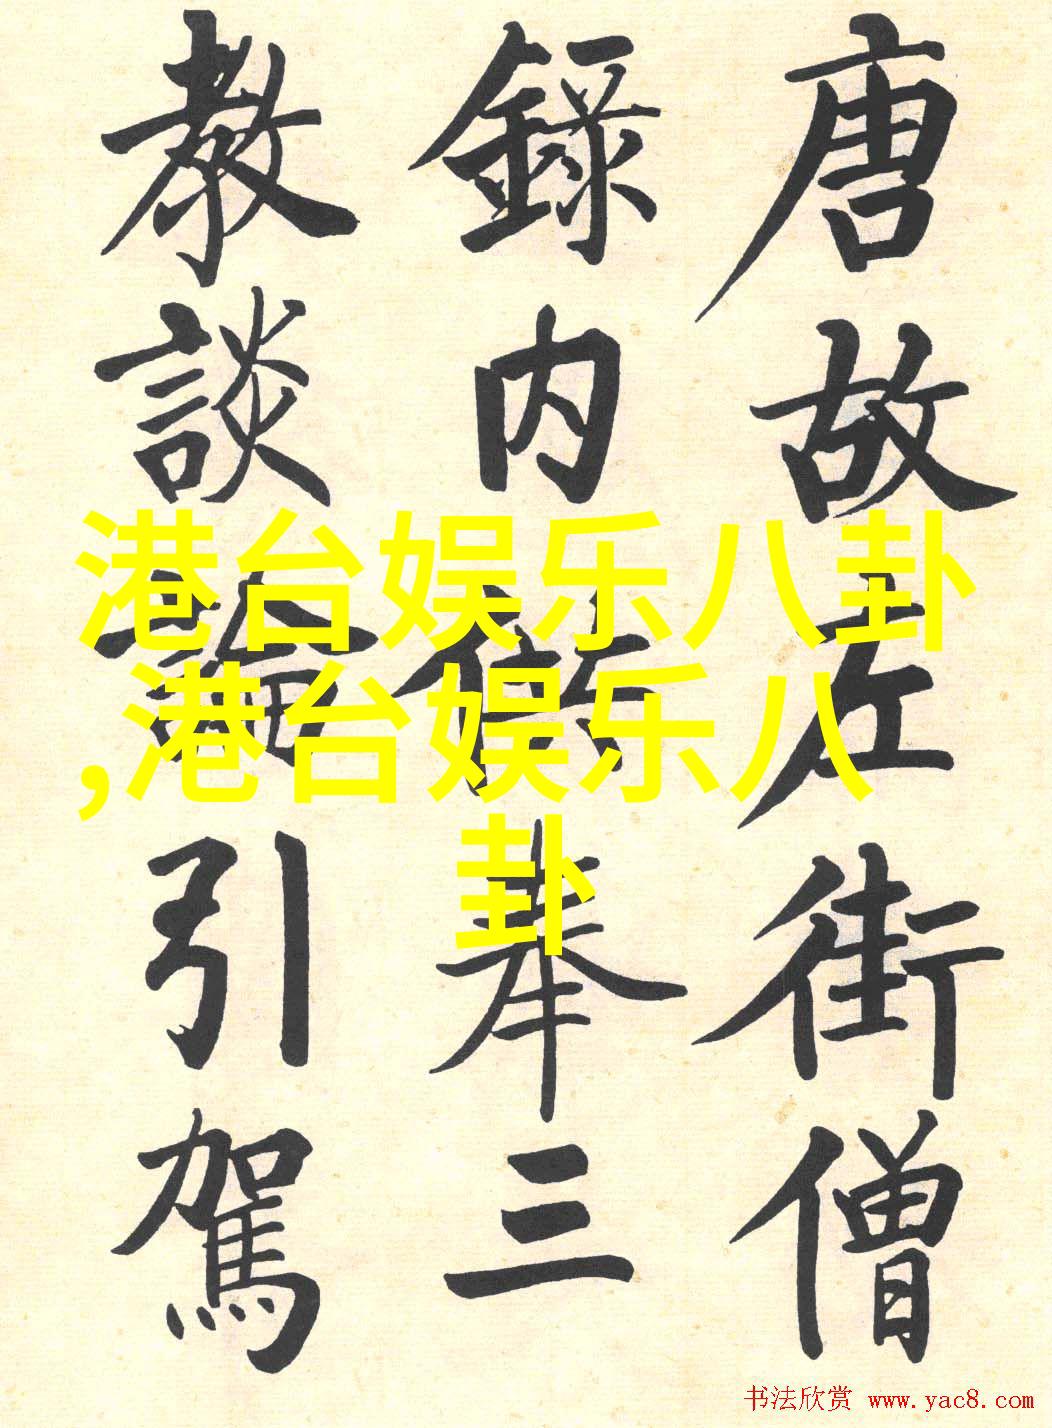 唐故左街僧
錄内供奉三
教談論引駕
港台娱乐八卦
,港台娱乐八
卦
书法欣赏 www.yac8.com